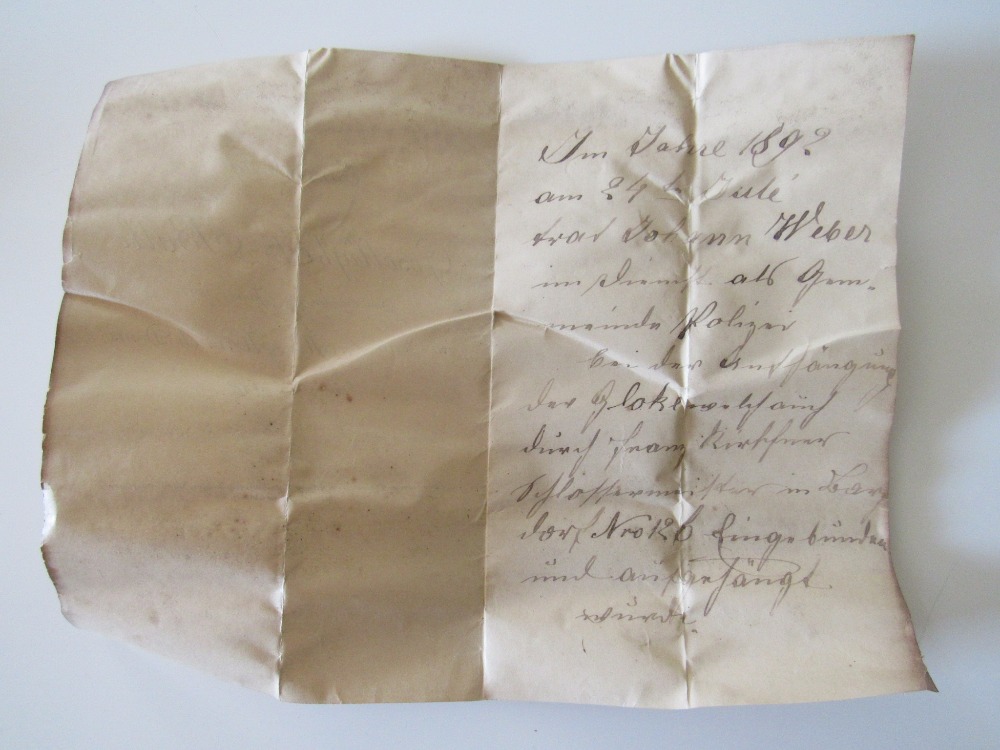 Im Jahre 1892
am 24 te Juli
trat Johann Weber
im Dienst als Gem-
meinde Polizei
bei der Aufhängung
der Gloke welch auch
durch Franz Kirschner
Schlossermeister in Bar
dorf Nro 126 Eingebunden
und aufgehängt
wurde.